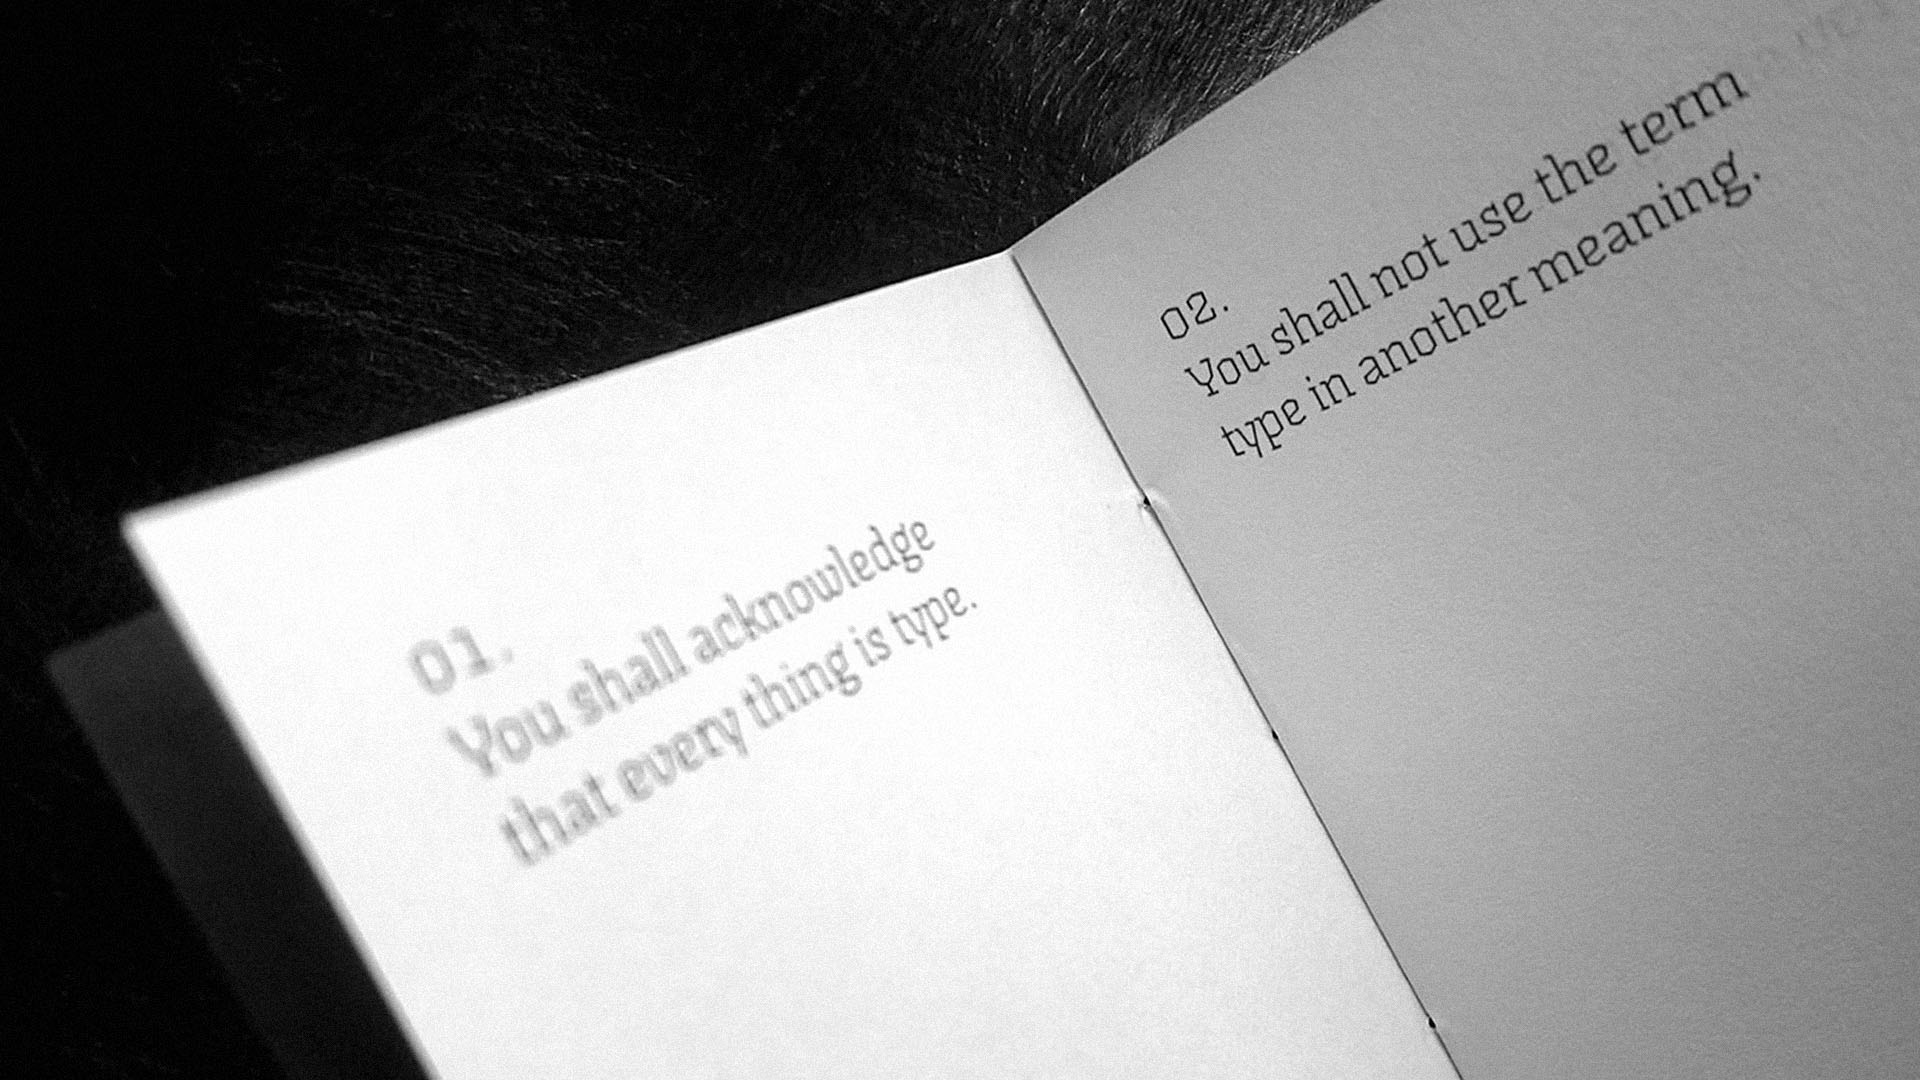 01.
You shall acknowledge
that every thing is type.
02.
You shall not use the term
type in another meaning.